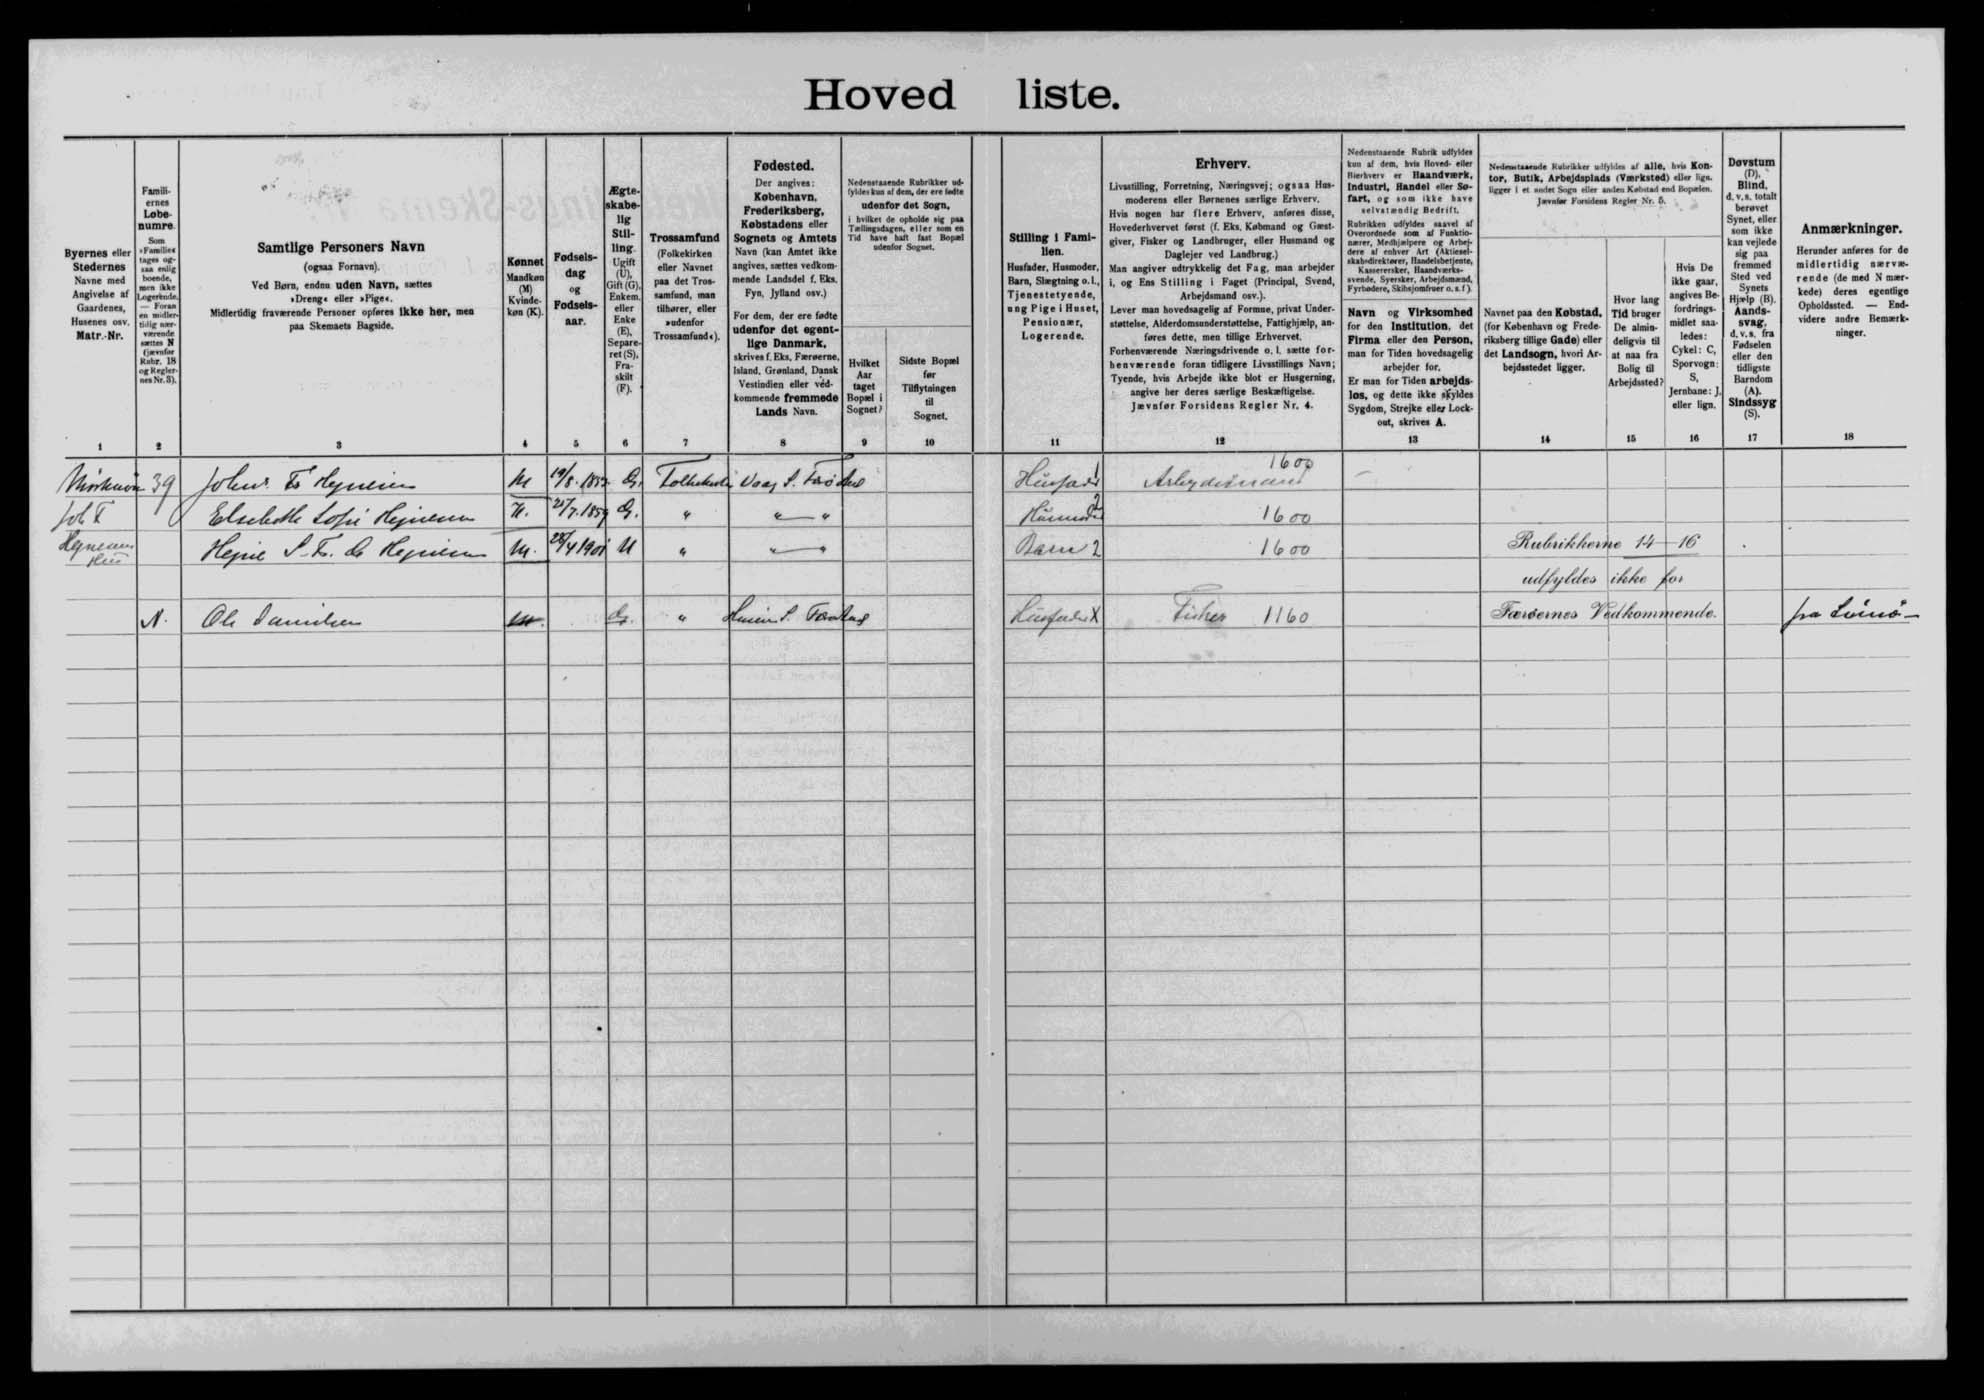 Hoved liste.
Byernes eller
Stedernes
Navne med
Angivelse af
Gaardenes,
Husenes osv.
Matr.-Nr.
1
Famili-
ernes
Løbe-
numre.
Som
»Familie«
tages og-
saa enlig
boende,
men ikke
Logerende.
— Foran
en midler-
tidig nær-
værende
sættes N
(jævnfør
Rubr. 18
og Regler-
nes Nr. 3).
2
Samtlige Personers Navn
(ogsaa Fornavn).
Ved Børn, endnu uden Navn, sættes
»Dreng« eller »Pige«.
Midlertidig fraværende Personer opføres ikke her, men
paa Skemaets Bagside.
3
Kønnet
Mandkøn
(M)
Kvinde-
køn (K).
4
Fødsels-
dag
og
Fødsels-
aar.
5
Ægte-
skabe-
lig
Stil-
ling.
Ugift
(U),
Gift (G),
Enkem.
eller
Enke
(E),
Separe-
ret (S),
Fra-
skilt
(F).
6
Trossamfund
(Folkekirken
eller Navnet
paa det Tros-
samfund, man
tilhører, eller
»udenfor
Trossamfund«).
7
Fødested.
Der angives:
København,
Frederiksberg,
Købstadens eller
Sognets og Amtets
Navn (kan Amtet ikke
angives, sættes vedkom-
mende Landsdel f. Eks.
Fyn, Jylland osv.)
For dem, der ere fødte
udenfor det egent-
lige Danmark,
skrives f. Eks. Færøerne,
Island, Grønland, Dansk
Vestindien eller ved-
kommende fremmede
Lands Navn.
8
Nedenstaaende Rubrikker ud-
fyldes kun af dem, der ere fødte
udenfor det Sogn,
i hvilket de opholde sig paa
Tællingsdagen, eller som en
Tid have haft fast Bopæl
udenfor Sognet.
Hvilket
Aar
taget
Bopæl i
Sognet?
9
Sidste Bopæl
før
Tilflytningen
til
Sognet.
10
Stilling i Fami-
lien.
Husfader, Husmoder,
Barn, Slægtning o. l.,
Tjenestetyende,
ung Pige i Huset,
Pensionær,
Logerende.
11
Erhverv.
Livsstilling, Forretning, Næringsvej; ogsaa Hus-
moderens eller Børnenes særlige Erhverv.
Hvis nogen har flere Erhverv, anføres disse,
Hovederhvervet først (f. Eks. Købmand og Gæst-
giver, Fisker og Landbruger, eller Husmand og
Daglejer ved Landbrug.)
Man angiver udtrykkelig det Fag, man arbejder
i, og Ens Stilling i Faget (Principal, Svend,
Arbejdsmand osv.).
Lever man hovedsagelig af Formue, privat Under-
støttelse, Alderdomsunderstøttelse, Fattighjælp, an-
føres dette, men tillige Erhvervet.
Forhenværende Næringsdrivende o. l. sætte for-
henværende foran tidligere Livsstillings Navn;
Tyende, hvis Arbejde ikke blot er Husgerning,
angive her deres særlige Beskæftigelse.
Jævnfør Forsidens Regler Nr. 4.
12
Nedenstaaende Rubrik udfyldes
kun af dem, hvis Hoved- eller
Bierhverv er Haandværk,
Industri, Handel eller Sø-
fart, og som ikke have
selvstændig Bedrift.
Rubrikken udfyldes saavel af
Overordnede som af Funktio-
nærer, Medhjælpere og Arbej-
dere af enhver Art (Aktiesel-
skabsdirektører, Handelsbetjente,
Kassererske, Haandværks-
svende, Syersker, Arbejdsmænd,
Fyrbødere, Skibsjomfruer o. s. f.).
Navn og Virksomhed
for den Institution, det
Firma eller den Person,
man for Tiden hovedsagelig
arbejder for.
Er man for Tiden arbejds-
løs, og dette ikke skyldes
Sygdom, Strejke eller Lock-
out, skrives A.
13
Nedenstaaende Rubrikker udfyldes af alle, hvis Kon-
tor, Butik, Arbejdsplads (Værksted) eller lign.
ligger i et andet Sogn eller anden Købstad end Bopælen.
Jævnfør Forsidens Regler Nr. 5.
Navnet paa den Købstad,
(for København og Frede-
riksberg tillige Gade) eller
det Landsogn, hvori Ar-
bejdsstedet ligger.
14
Hvor lang
Tid bruger
De almin-
deligvis til
at naa fra
Bolig til
Arbejdssted?
15
Hvis De
ikke gaar,
angives Be-
fordrings-
midlet saa-
ledes:
Cykel: C,
Sporvogn:
S,
Jernbane: J,
eller lign.
16
Døvstum
(D),
Blind,
d. v. s. totalt
berøvet
Synet, eller
som ikke
kan vejlede
sig paa
fremmed
Sted ved
Synets
Hjælp (B).
Aands-
svag,
d. v. s. fra
Fødselen
eller den
tidligste
Barndom
(A).
Sindssyg
(S).
17
Anmærkninger.
Herunder anføres for de
midlertidig nærvæ-
rende (de med N mær-
kede) deres egentlige
Opholdssted. — End-
videre andre Bemærk-
ninger.
18
39 Hejnesen M G. Folkekirken Vaag S. Husfader 1 Arbejdsmand 1600
Elsebeth Sofie Hejnesen K. G. " " — " Husmoder 2 1600
Hejnesens
Hus
Hejne Hejnesen M. 28/4 1901 U " " — " Barn 2 1600 Rubrikkerne 14—16
udfyldes ikke for
N. Ole Danielsen M. G. " Husfader X Fisker 1160 Færøernes Vedkommende. fra